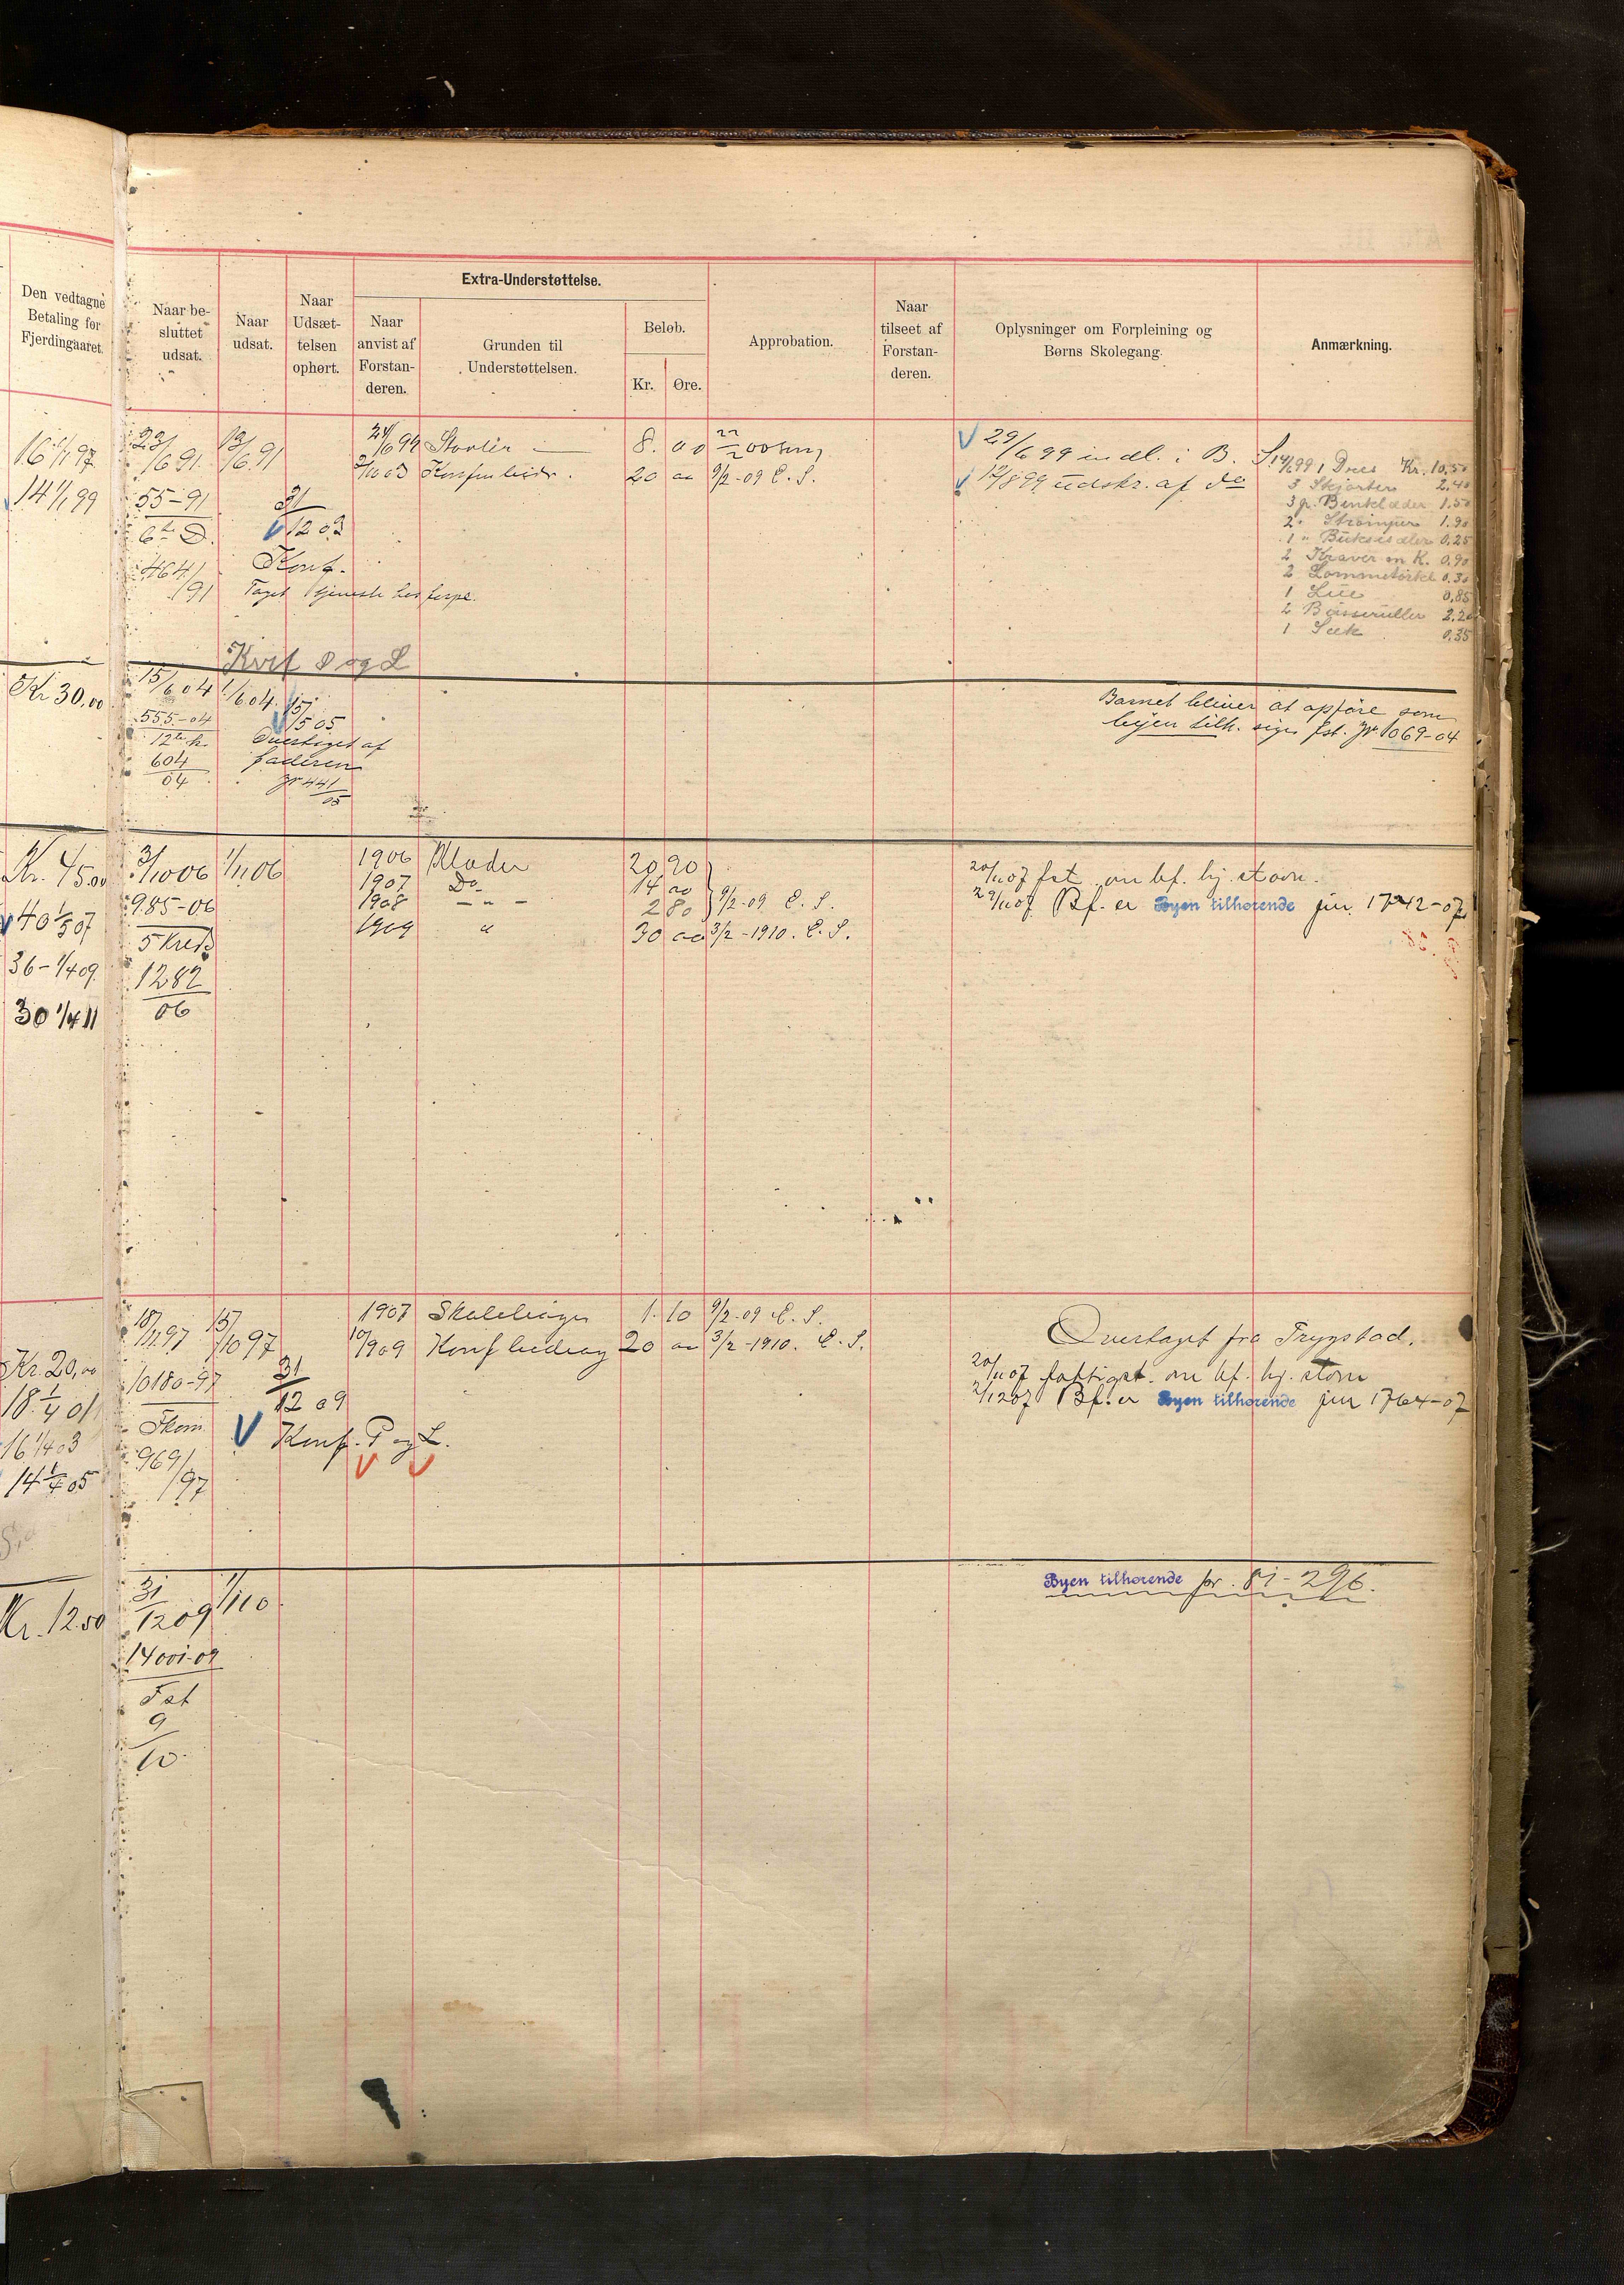 Den vedtagne
Betaling for
Fjerdingaaret.
Naar be-
sluttet
udsat.
Naar
udsat.
Naar
Udsæt-
telsen
ophørt.
Extra-Understøttelse.
Naar
anvist af
Forstan-
deren.
Grunden til
Understøttelsen.
Beløb.
Kr.
Øre.
Approbation.
Naar
tilseet af
Forstan-
deren.
Oplysninger om Forpleining og
Børns Skolegang.
Anmærkning.
16 1/1 97
14 1/1 99
23/6 91
13/6 91
55-91
6te D.
464/91
31/12 03
Konf.
Taget tjeneste hos forpl.
24/6 99 Støvler 8. 00
2/10 03 20 00 9/2-09 E. S.
29/6 99 indl. i B. S.
12/8 99 udskr. af do
14/6 99 1 Dres Kr. 10,50
3 Skjorter 2.40
3 p. Benklæder 1.50
2 " Strømper 1.90
1 " Bukseseler 0.25
2 Kraver m K. 0.90
2 Lommetørkl 0.30
1 Lue 0,85
2 Busseruller 2.20
1 Sæk 0.35
Kvit P og L
Kr 30,00
15/6 04
1/6 04
555-04
12te k.
604/04
15/5 05
Overtaget af
faderen
Jr 441/05
Barnet bliver at opføre som
byen tilh. sign fst. Jr 1069-04
Kr. 45.00
40 1/5 07
36-1/4 09.
30 1/4 11
31/10 06
1/11 06
985-06
5 Kreds
1282/06
1906 Klæder 20 90
1907 Do 14 00
1908 - " - 2 80 9/2-09 E. S.
1909 " 30 00 3/2-1910. E. S.
20/11 07 fst. om bf. hj. stavn.
29/11 07 Bf. er Byen tilhørende jnr. 1742-07
Kr. 20,00
18 1/4 01
16 1/4 03
14 1/4 05
18/11 97
15/10 97
10180-97
Skom
969/97
31/12 09
Konf. P og L.
1907 1. 10 9/2-09 E. S.
10/1909 Konf bidrag 20 00 3/2-1910. E. S.
Overtaget fra Trygstad.
20/11 07 om bf. hj. stavn
2/12 07 Bf. er Byen tilhørende jnr 1764-07
Kr. 12.50
31/12 09
1/1 10.
14001-09
Fat
9/10.
Byen tilhørende jnr. 81-296.